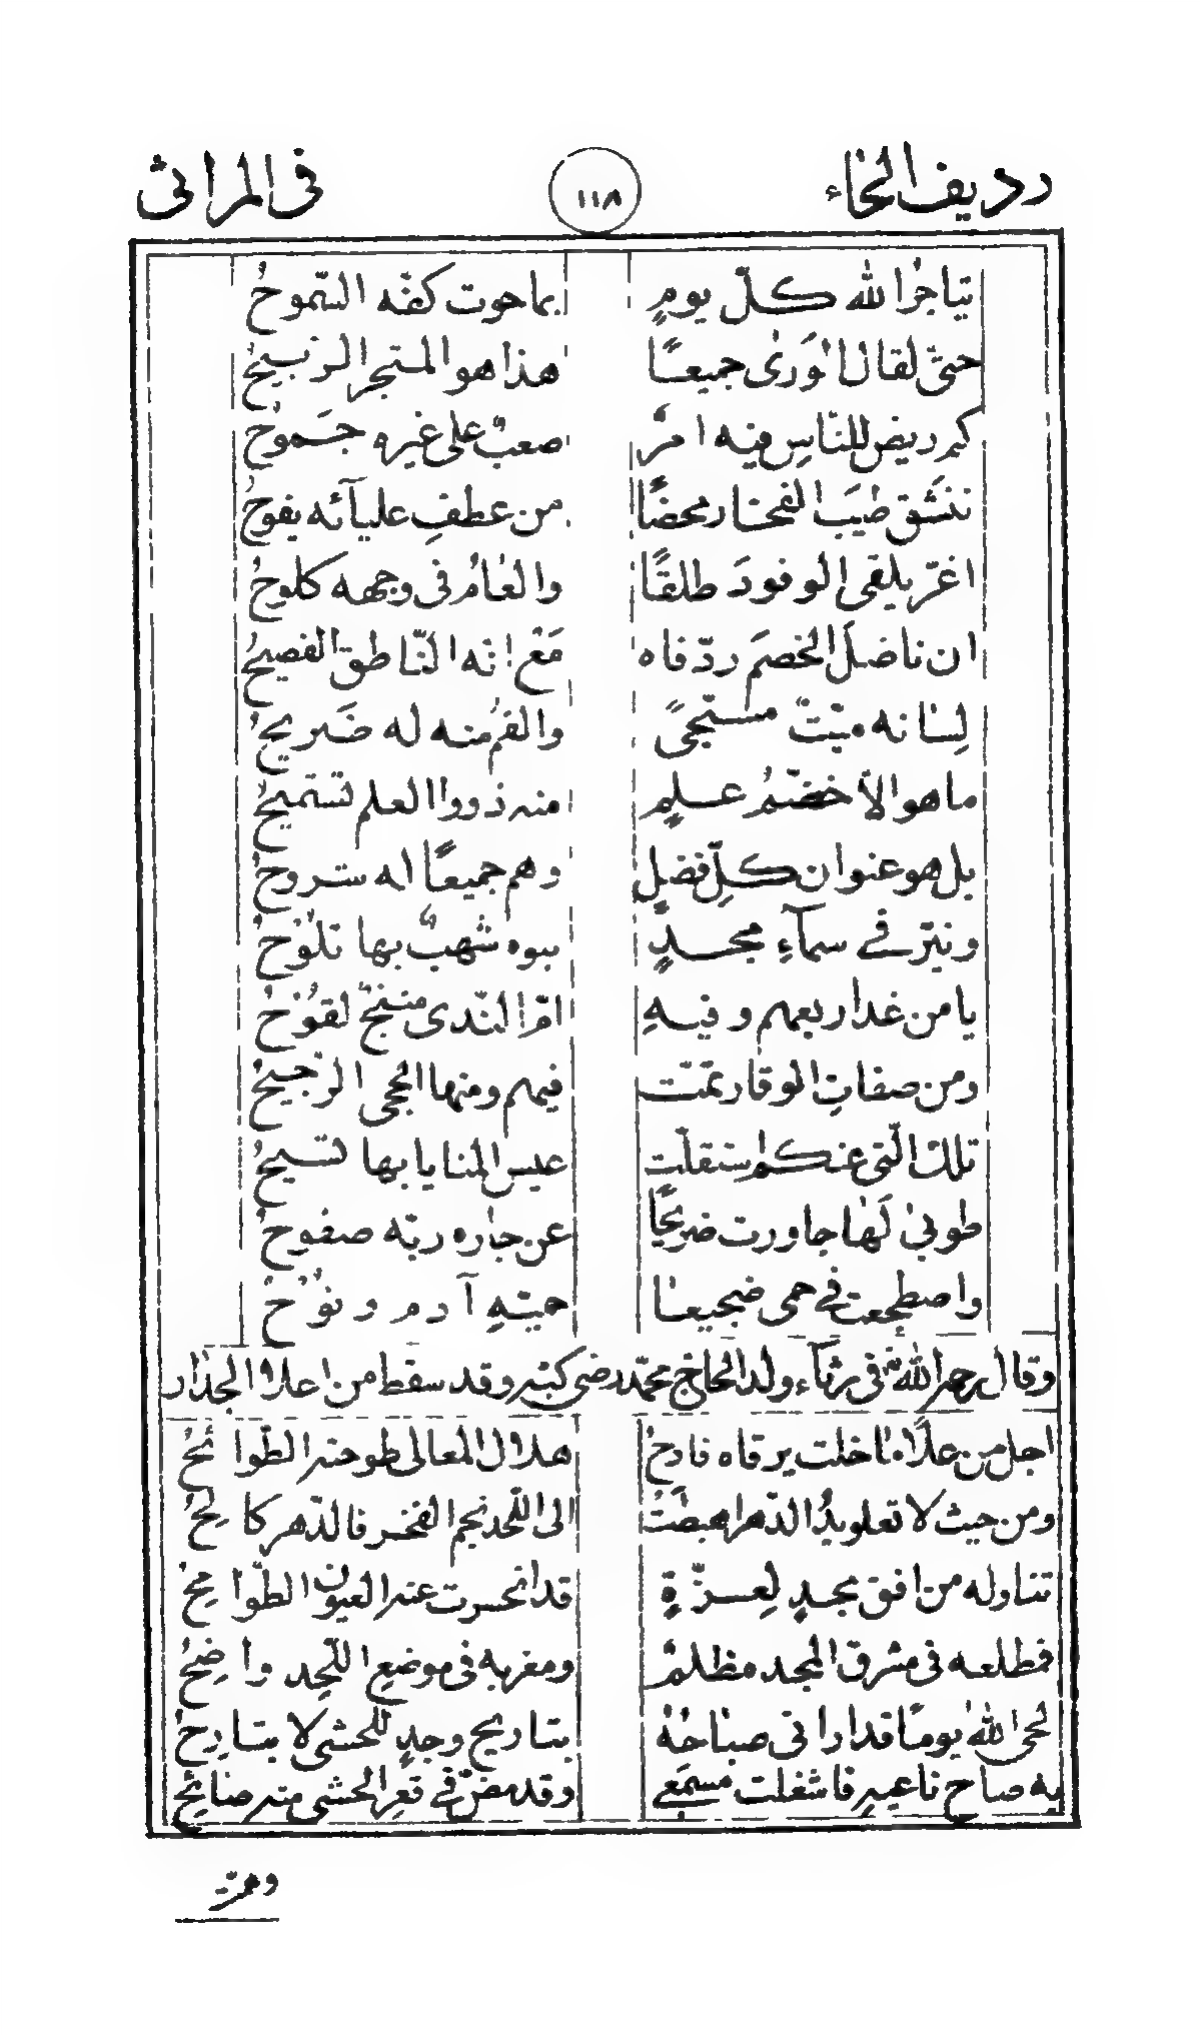 رديف الحاء ١١٨ فى المراثى
يتاجر الله كلّ يومٍ بما حوت كفّه السّموحُ
حتىّ لقال الورى جميعًا هذا هو المتجر الربيحُ
كم ريض للنّاسِ فيه امرٌ صعبٌ على غيره جَموحُ
ننشق طيبَ الفخار محضًا من عطفِ عليآئه يفوحُ
اغرّ يلقى الوفودَ طلقًا والعامُ فى وجهه كلوحُ
ان ناضلَ الخصمَ ردّ فاه مَعْ انّه النّاطق الفصيحُ
لِسانه ميّتٌ مسجّىً والفمُ منه له ضَريحُ
ما هو الاّ خضمُّ علمٍ منه ذووا العلم تستميحُ
بل هو عنوان كلِّ فضلٍ وهم جميعًا له شروحُ
ونيّر فے سمآءِ مجدٍ بنوه شهبٌ بها تلوُحُ
يا من غدا ربعهم وفيهِ امّ الندى منتجٌ لقوُحُ
ومن صفاتِ الوقار تمّت فيهم ومنها الحجى الرّجيحُ
تلك الّتى عنكم استقلّت عيس المنايا بها تسيحُ
طوبىٰ لَها جاورت ضريحًا عن جاره ربّه صفوحُ
واضطجعت فے حمى ضجيعا حيّيهِ آدم ونوُحُ
وقال رحمه الله فى رثآء ولد الحاج محمّد رضى كبّه وقد سقط من اعلا الجدار
اجل من علًا ما خلت يرقاه فادحُ هلال المعالى طوحته الطّوائحُ
ومن حيث لا تعلو يدُ الدّهر اهبطَتْ الى اللّحد نجم الفخر فالدّهر كالحُ
تناوله من افق مجدٍ لِعزّةٍ قد انحسرت عنه العيون الطّوامحُ
فمطلعه فى مشرق المجد مظلمٌ ومغربه فى موضعِ اللّحد واضِحُ
لحى الله يومًا قد ارانى صباحُهُ بتاريح وجدٍ للحشى لا يتارحُ
به صاح ناعيهِ فاشغلت مسمَعى وقد مضّ فے قعرِ الحشى منه صائحُ